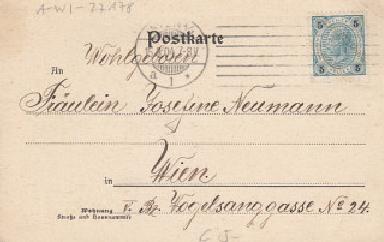 A-WI-77178
Postkarte
5 5
5 5
Wohlgeboren
An
Fräulein Josefine Neumann
in Wien
Wohnung
Straße und Hausnummer
V. Bz. Vogelsanggasse No 24.